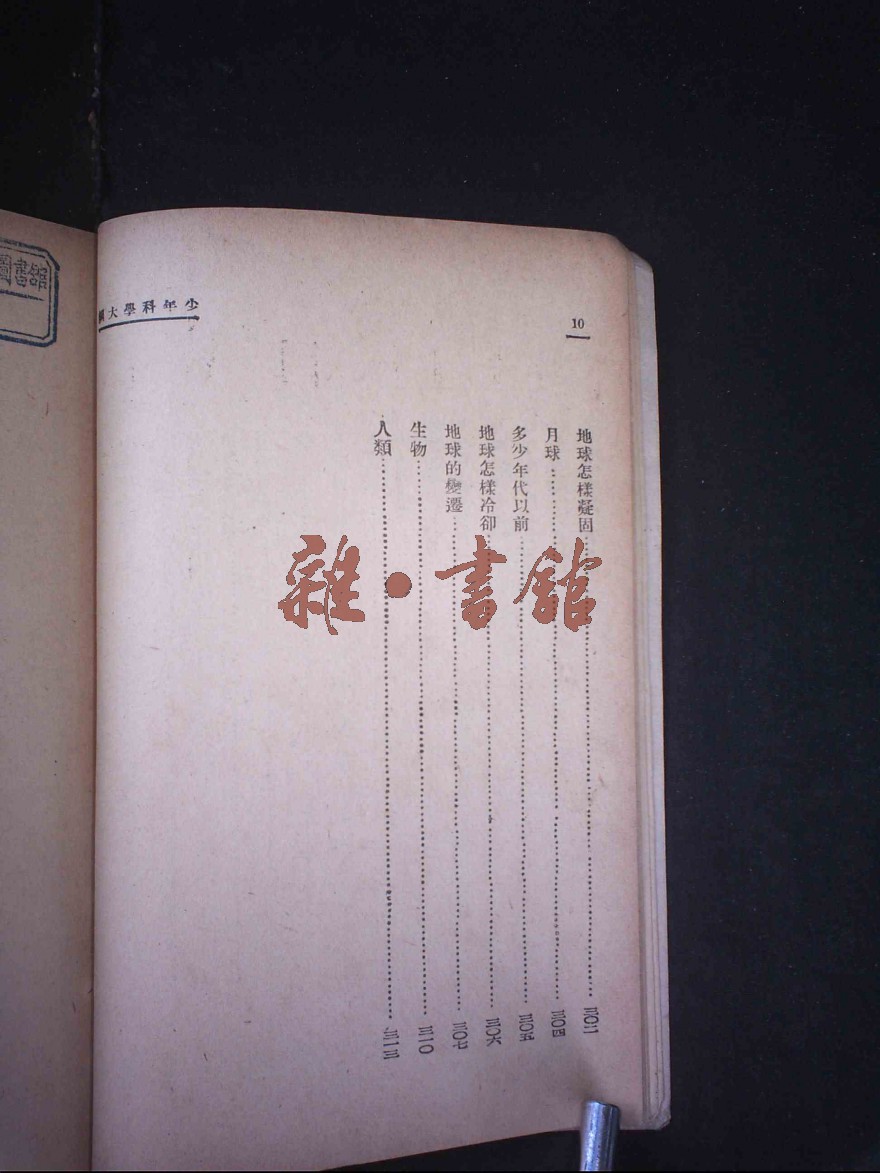 10
少年科學大
地球怎樣凝固……三〇二
月球……三〇四
多少年代以前……三〇五
地球怎樣冷卻……三〇六
地球的變遷……三〇七
生物……三一〇
人類……三一三
圖書館
雜•書館